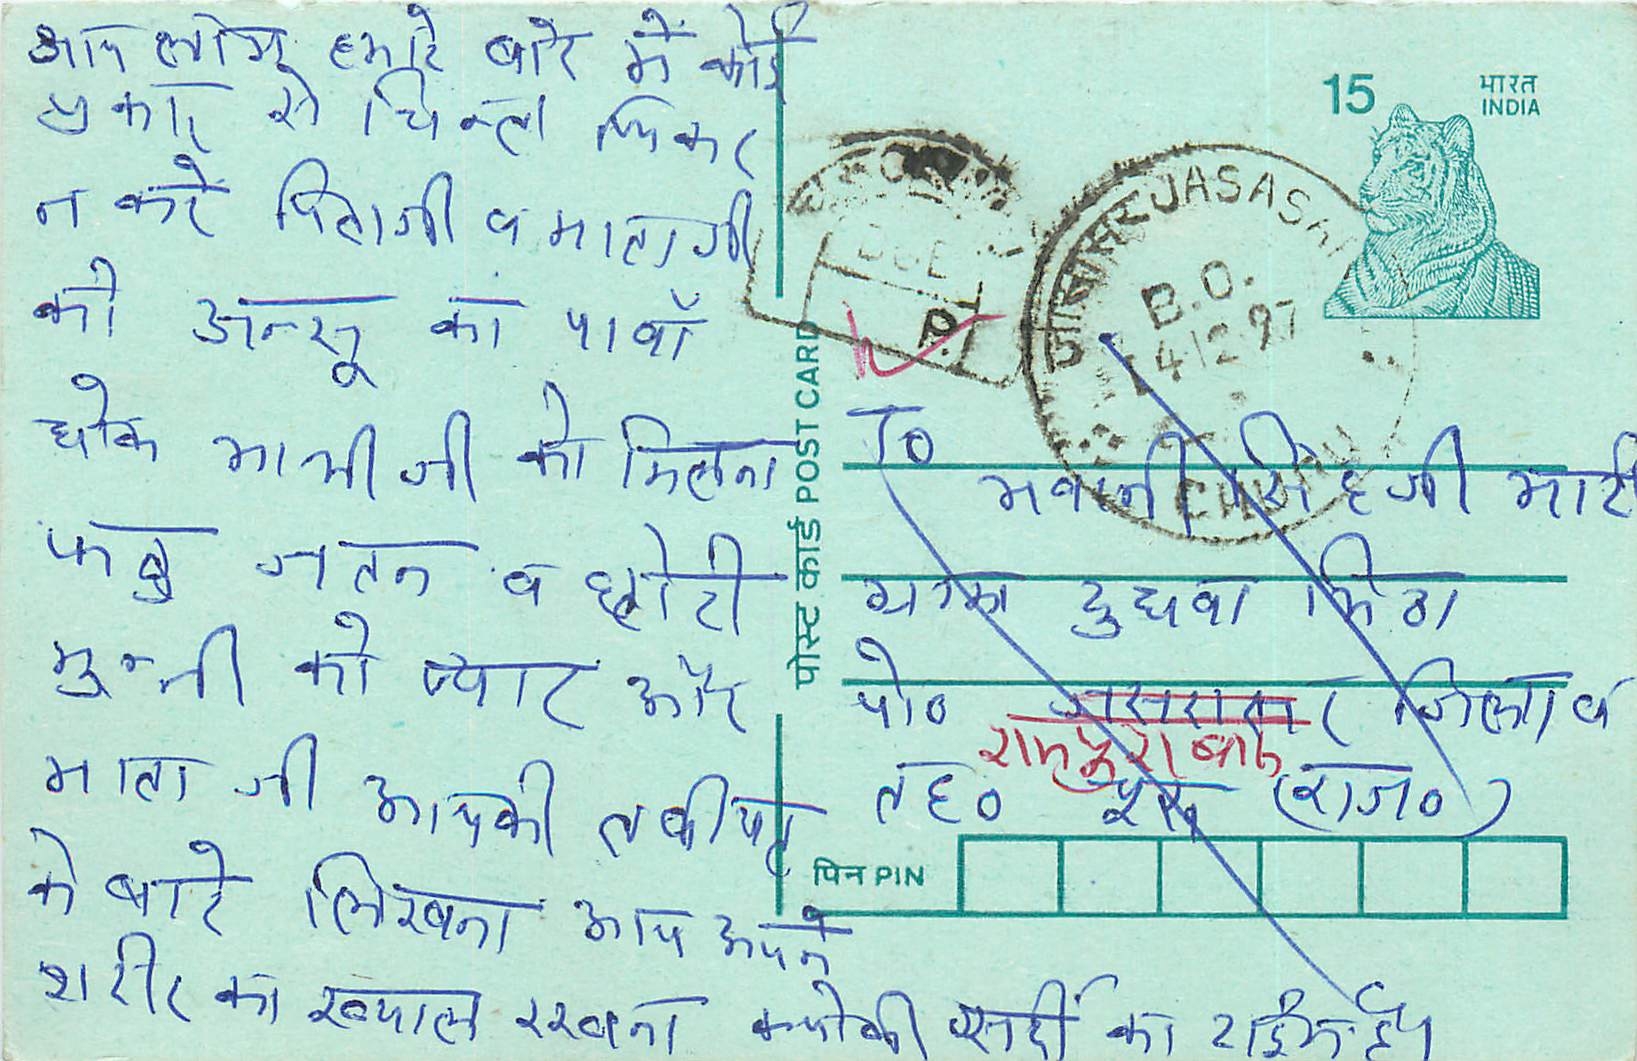 आप लोग हमारे बारे में कोई
प्रकार से चिन्ता फिकर
न करे पिताजी व माताजी
को अन्सू का पावाँ
धोक भाभीजी को मिलना
फाबु जतन व छोटी
मुन्नी को प्यार और
माता जी आपकी तबीयत
के बारे लिखना आप अपने
शरीर का ख्याल रखना क्योकी सर्दी का टाईम है।
15
भारत
INDIA
जासासर JASASAR
B.O.
4 12 97
CHURU
DUE
P.
पोस्ट कार्ड POST CARD
To
भवानी सिंह जी भाटी
ग्राम दुधवा मिठा
पो० जसरासर जिला व
रामपुरा बास
तह० चूरू (राज०)
पिन PIN